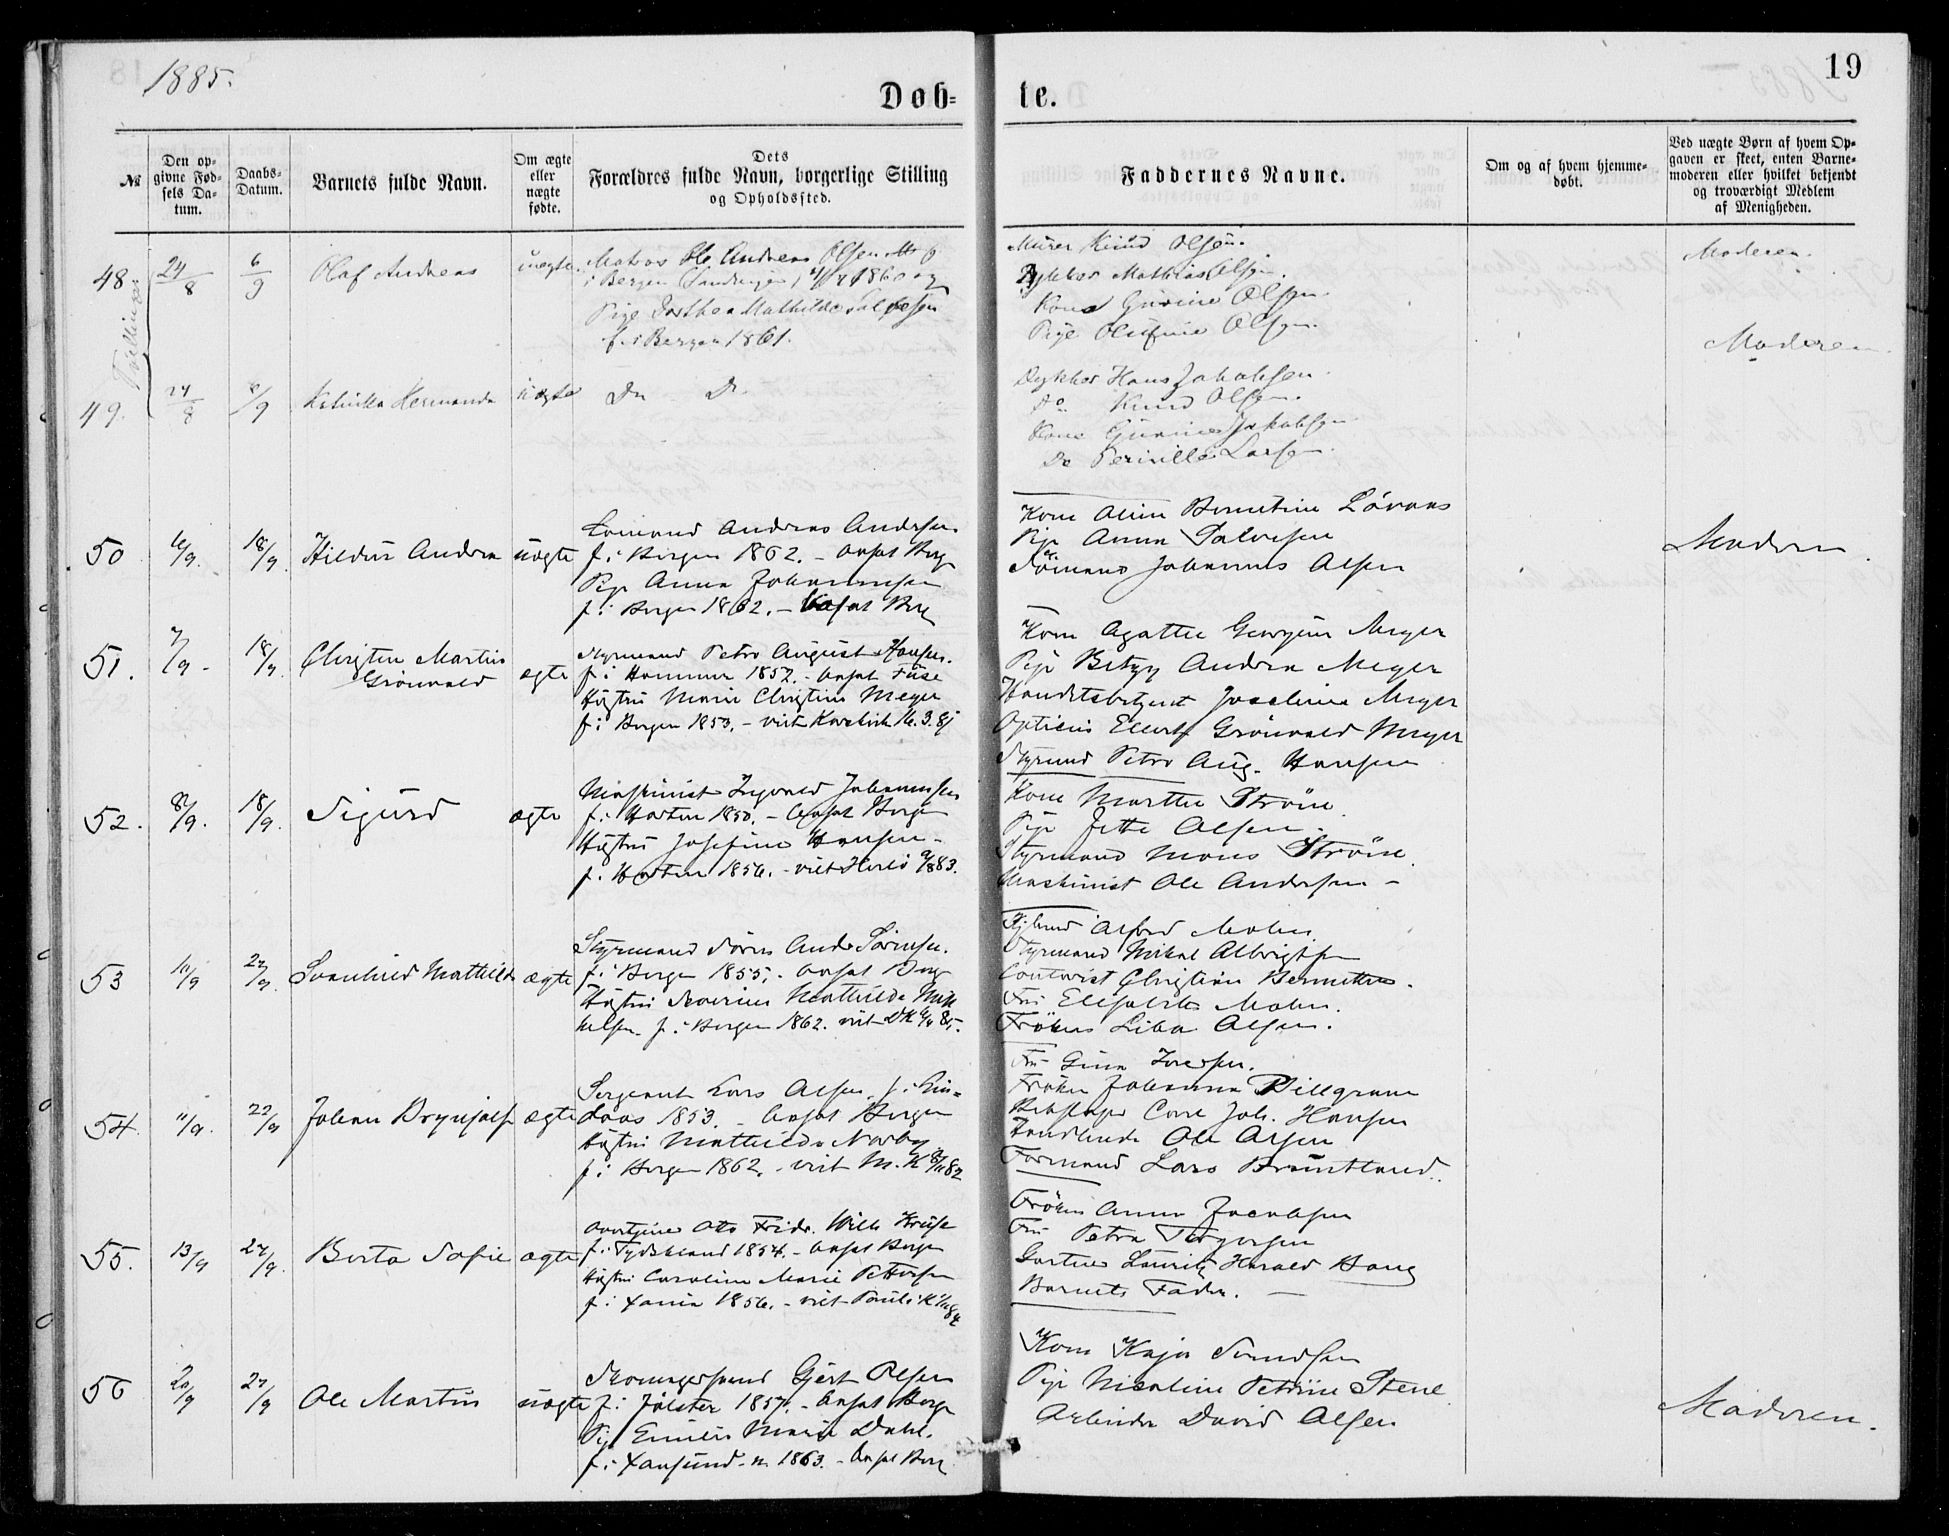 1885.
Døb=
te.
19
№
Den op=
givne Fød=
sels Da=
tum.
Daabs=
Datum.
Barnets fulde Navn.
Om ægte
eller
uægte
fødte.
Dets
Forældres fulde Navn, borgerlige Stilling
og Opholdssted.
Faddernes Navne.
Om og af hvem hjemme=
døbt.
Ved uægte Børn af hvem Op=
gaven er skeet, enten Barne=
moderen eller hvilket bekjendt
og troværdigt Medlem
af Menigheden.
Tvillinger
48
24/8
6/9
Olaf Andreas
uægte
Matros Ole Andreas Olsen
i Bergen 1860 og
Pige Dorthea Mathilde
f. i Bergen 1861.
Murer Knud Olsen.
Dykker Mathias Olsen.
Kone Gurine Olsen.
Pige Olufine Olsen.
Moderen.
49.
24/8
6/9
Katinka Hermanda
uægte
Do Do
Dykker Hans Jakobsen
Do Knud Olsen.
Kone Gurine Jakobsen
Do Pernille Larsen.
Moderen
50
6/9.
18/9.
Hildur Andrea
uægte
Sømand Andreas Andersen
f. i Bergen 1862. - bosat Berg
Pige Anna Johannesen
f. i Bergen 1862. - bosat Berg
Kone Oline Berntine
Pige Anna Salvesen
Sømand Johannes Olsen
Moderen
51.
7/9.
18/9.
Christen Martin
Grönvold
ægte
Styrmand Petro August Hansen.
f. i Hammer 1857. - bosat Fuse
Hustru Marie Christine Meyer
f. i Bergen 1853. - viet
Kone Agathe Georgine Meyer
Pige Betzy Andrea Meyer
Handelsbetjent Joachim Meyer
Opticus Ellert Grönvold Meyer
Styrmand Petro Aug. Hansen
52.
8/9.
18/9.
Sigurd
ægte
Maskinist Ingvald Johannesen
f. i Horten 1850. - bosat Bergen
Hustru Josefine Hansen -
f. i Horten 1856. - viet
Kone Marthe Ström
Pige Jette Olsen.
Styrmand Mons Ström.
Maskinist Ole Andersen -
53
10/9
27/9.
Svanhild Mathilde
ægte
Styrmand Sören And. Sörensen.
f. i Bergen 1855. - bosat Berg
Hustru Severine Mathilde Mik
kelsen f. i Bergen 1862. viet DK
Alfred Mohn
Styrmand Mikal Albrigtsen
Contorist Christian Berentsen.
Fru Elisabeth Mohn.
Fröken Olsen.
54.
11/9.
22/9
Johan Brynjulf
ægte
Sergeant Lars Olsen, f. i Lin=
daas 1853. - bosat Bergen
Hustru Mathilde Norby
f. i Bergen 1862. - viet M. K
Fru Gina Iversen.
Fröken Johanna Dillgram
Joh. Hansen
Handlende Ole Olsen
Formand Lars Bruntland.
55.
13/9
27/9.
Berta Sofie
ægte
Otto Fridr. Wilh. Kruse
f. i Tydskland 1854. - bosat Bergen
Hustru Caroline Marie Pettersen
f. i Xania 1856. - viet
Fröken Anna Jacobsen
Fru Petra Torgersen
Gartner Lauritz Harald Haug
Barnets Fader. -
56
20/9
27/9
Ole Martin
uægte
Skomagersvend Gjert Olsen
f. i Jölster 1857. - bosat Berge
Pige Emilie Marie Dahl.
f. i Xansund n. 1863. - bosat Berg
Kone Kaja Svendsen
Pige Nicoline Petrine Stene
Arbeider David Olsen
Moderen.